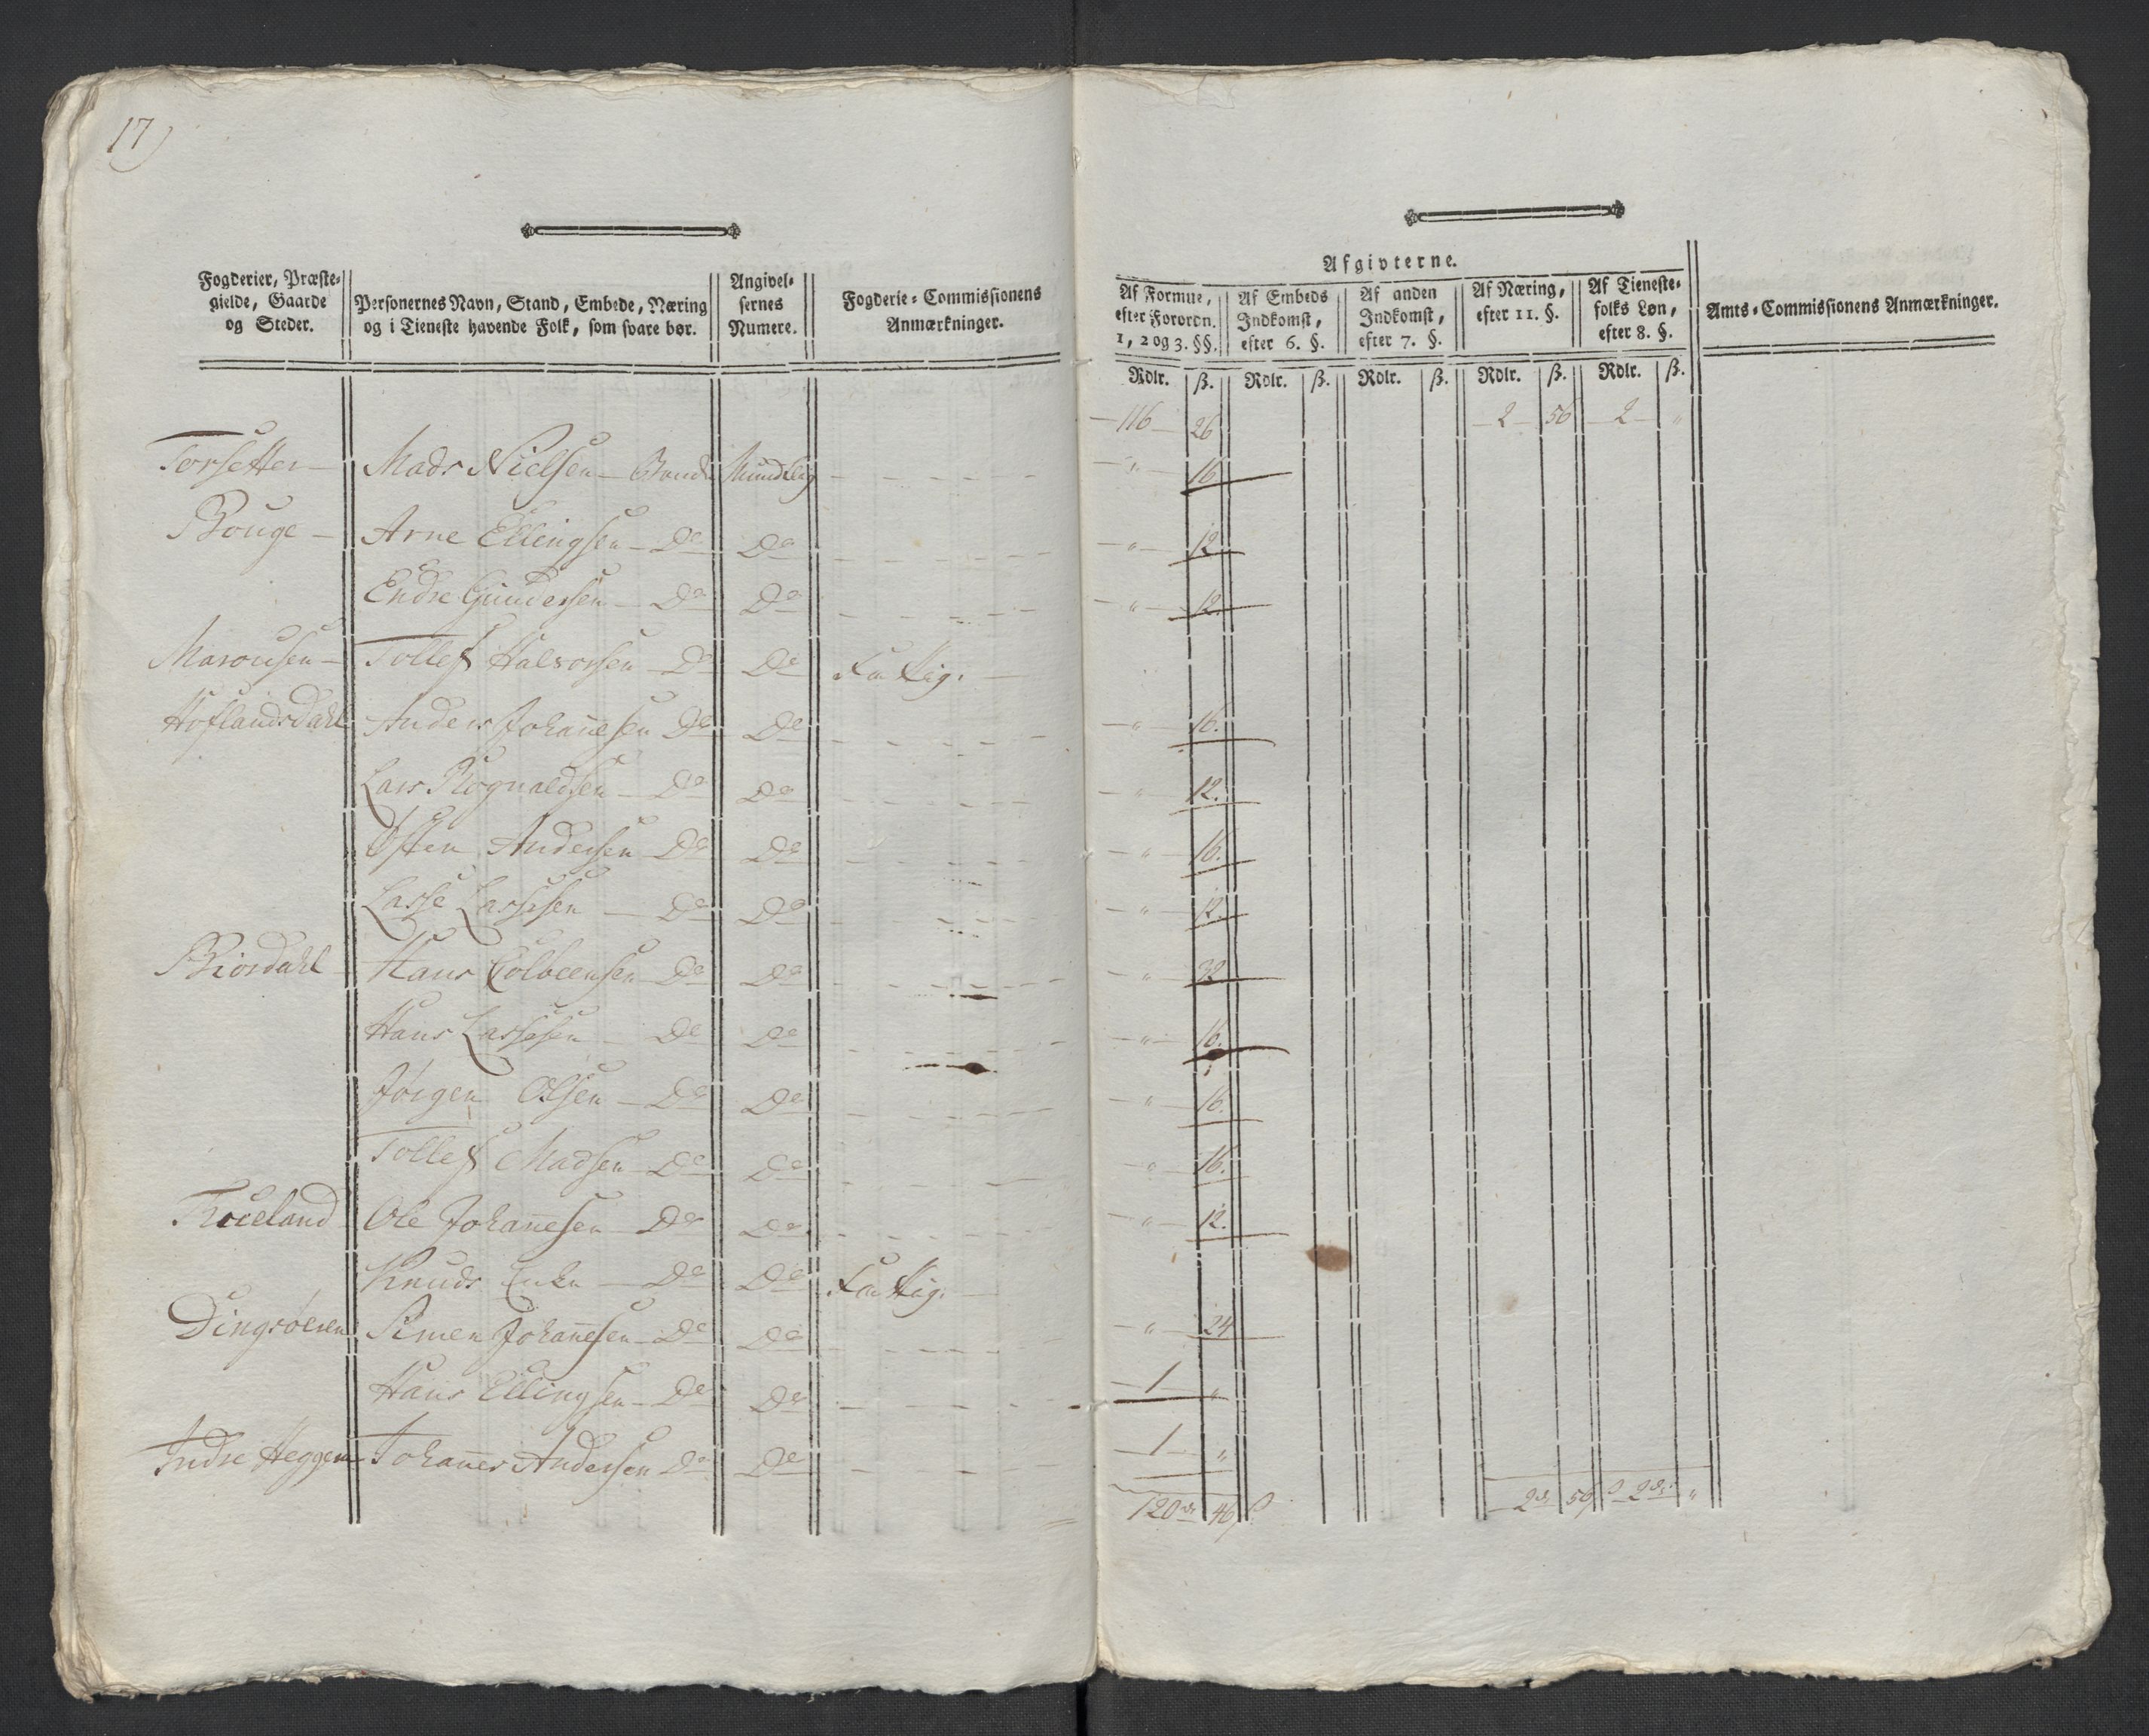 17)
Fogderier, Præste-
gielde, Gaarde
og Steder.
Personernes Navn, Stand, Embede, Næring
og i Tieneste havende Folk, som svare bør.
Angivel-
sernes
Numere.
Fogderie-Commissionens
Anmærkninger.
Afgivterne.
Af Formue,
efter Forordn.
1, 2 og 3. §§.
Af Embeds
Indkomst,
efter 6. §.
Af anden
Indkomst,
efter 7. §.
Af Næring,
efter 11. §.
Af Tieneste-
folks Løn,
efter 8. §.
Amts-Commissionens Anmærkninger.
Rdlr. ß. Rdlr. ß. Rdlr. ß. Rdlr. ß. Rdlr. ß.
116 26 2 56 2 "
Torsetter Mads Nielsen Bonde Mundtlig " 16
Bouge Arne Ellingsen Do Do " 12
Endre Gundersen Do Do " 12.
Tollef Halvorsen Do Do Fattig.
Hoflandsdahl Anders Johanesen Do Do " 16.
Lars Rognaldsen Do Do " 12.
Østen Andersen Do Do " 16.
Lasse Lassesen Do Do " 12.
Riordahl Hans Colbeensen Do Do " 32
Hans Lassesen Do Do " 16.
Jørgen Olsen Do Do " 16.
Tollef Madsen Do Do " 16.
Ole Johanesen Do Do " 12.
Knuds Enke Do Do Fattig.
Dingsøeren Simen Johanesen Do Do " 24
Hans Ellingsen Do Do 1 "
Indre Heggem Johanes Andersen Do Do 1 "
120 rd 46 ß 2 rd 56 ß 2 rd "